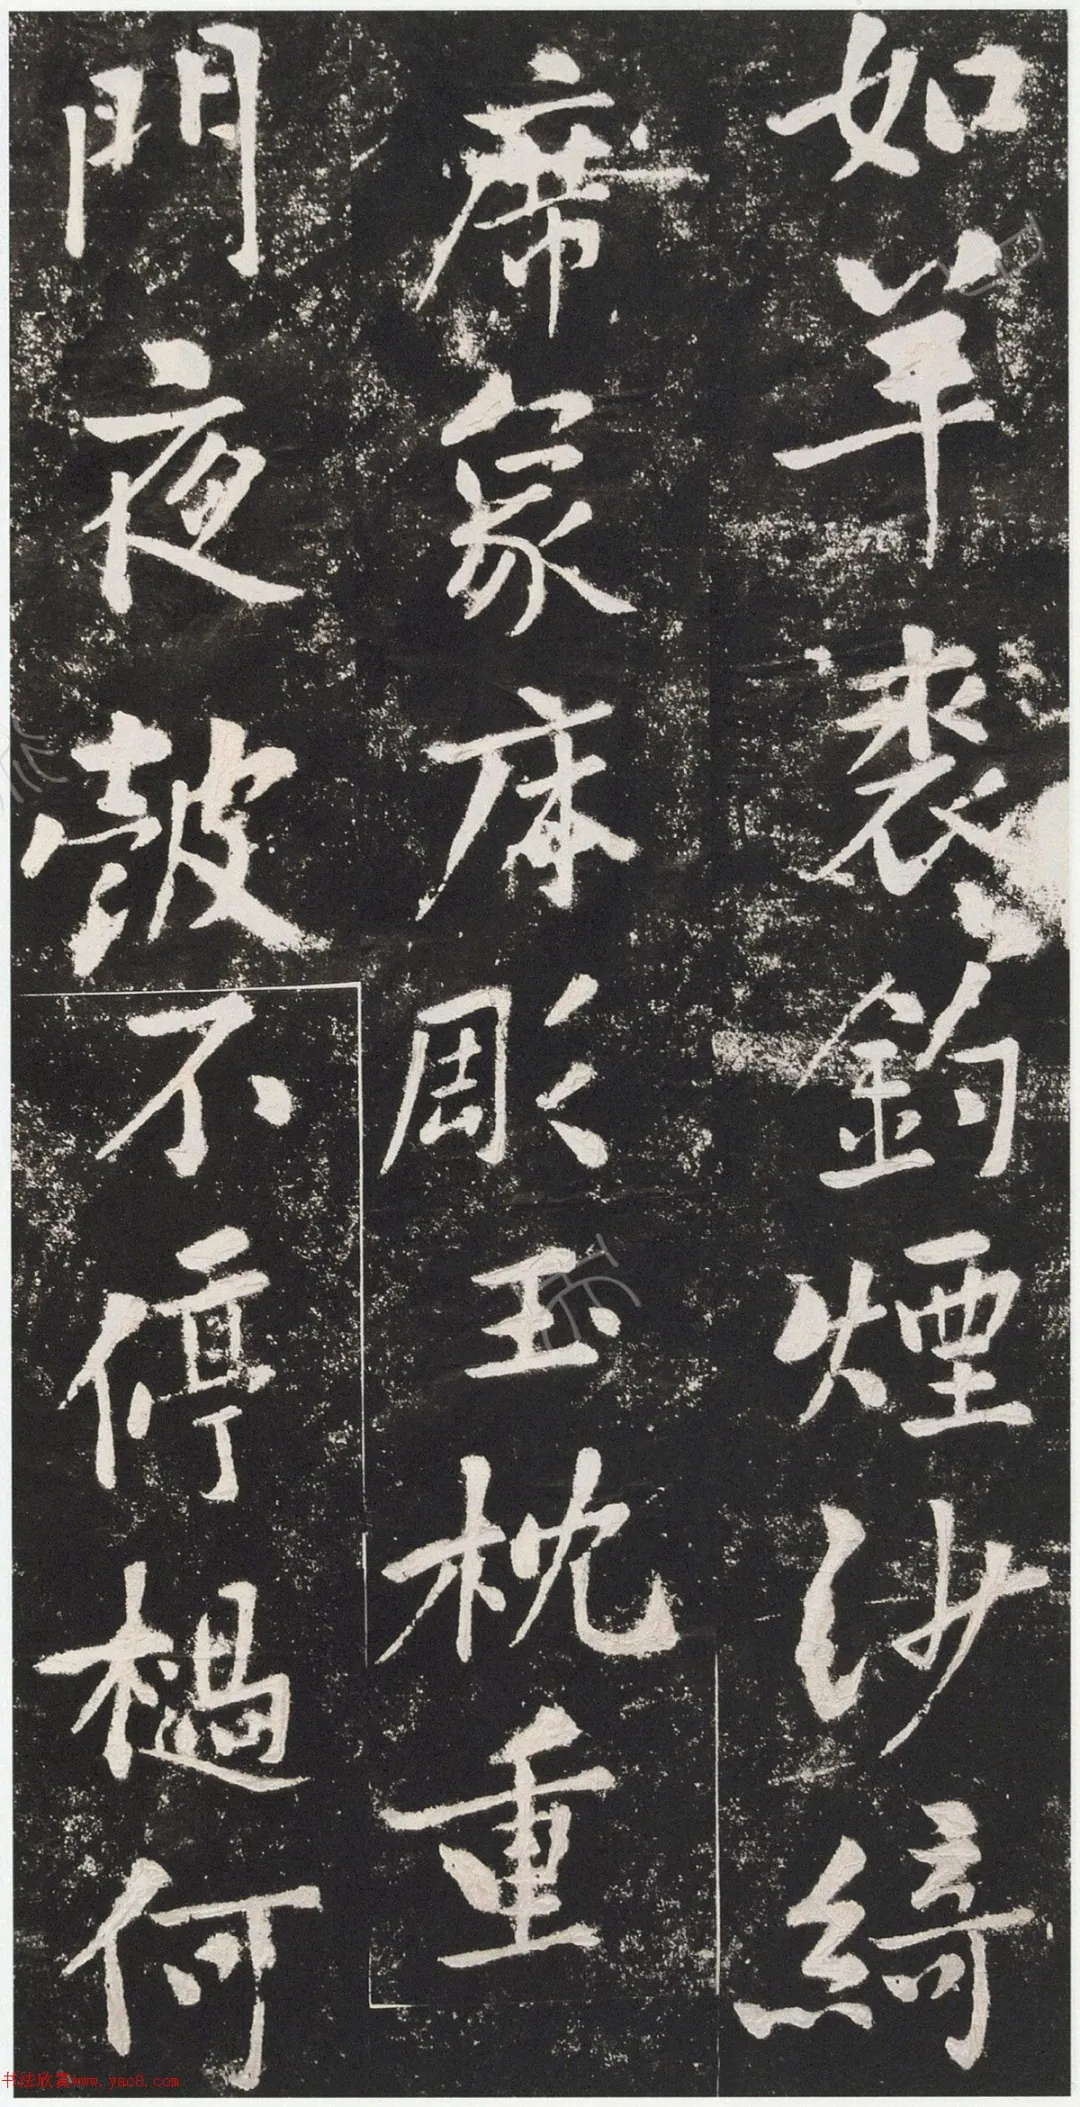 如羊裘釣煙沙綺
席象床彫玉枕重
門夜鼓不停檛何
书法欣赏www.yac8.com